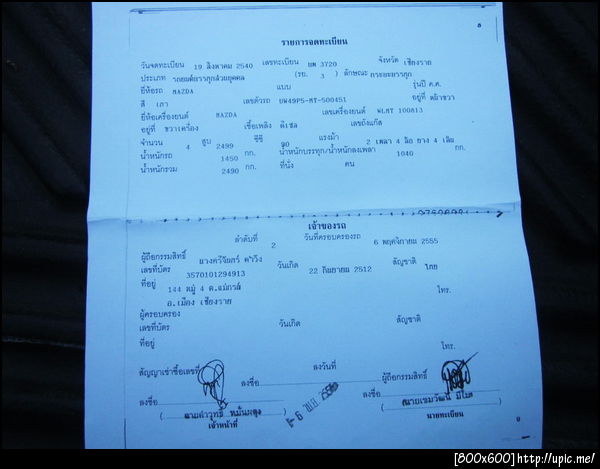 8
รายการจดทะเบียน
วันจดทะเบียน 19 สิงหาคม 2540 เลขทะเบียน บพ 3720 จังหวัด เชียงราย
ประเภท รถยนต์บรรทุกส่วนบุคคล (รย. 3 ) ลักษณะ กระบะบรรทุก
ยี่ห้อรถ MAZDA แบบ รุ่นปี ค.ศ.
สี เทา เลขตัวรถ UW49P5-MT-500451 อยู่ที่
ยี่ห้อเครื่องยนต์ MAZDA เลขเครื่องยนต์ WLMT 100813
อยู่ที่ ขวาเครื่อง เชื้อเพลิง ดีเซล เลขถังแก๊ส
จำนวน 4 สูบ 2499 ซีซี 90 แรงม้า 2 เพลา 4 ล้อ ยาง 4 เส้น
น้ำหนักรถ 1450 กก. น้ำหนักบรรทุก/น้ำหนักลงเพลา 1040 กก.
น้ำหนักรวม 2490 กก. ที่นั่ง คน
เจ้าของรถ
ลำดับที่ 2 วันที่ครอบครองรถ 6 พฤศจิกายน 2555
ผู้ถือกรรมสิทธิ์
เลขที่บัตร 3570101294913 วันเกิด 22 กันยายน 2512 สัญชาติ ไทย
ที่อยู่ 144 หมู่ 4 โทร.
อ.เมือง เชียงราย
ผู้ครอบครอง
เลขที่บัตร วันเกิด สัญชาติ
ที่อยู่ โทร.
สัญญาเช่าซื้อเลขที่ ลงวันที่
ลงชื่อ ผู้ถือกรรมสิทธิ์
ลงชื่อ ลงชื่อ
เจ้าหน้าที่ นายทะเบียน
[800x600]http://upic.me/